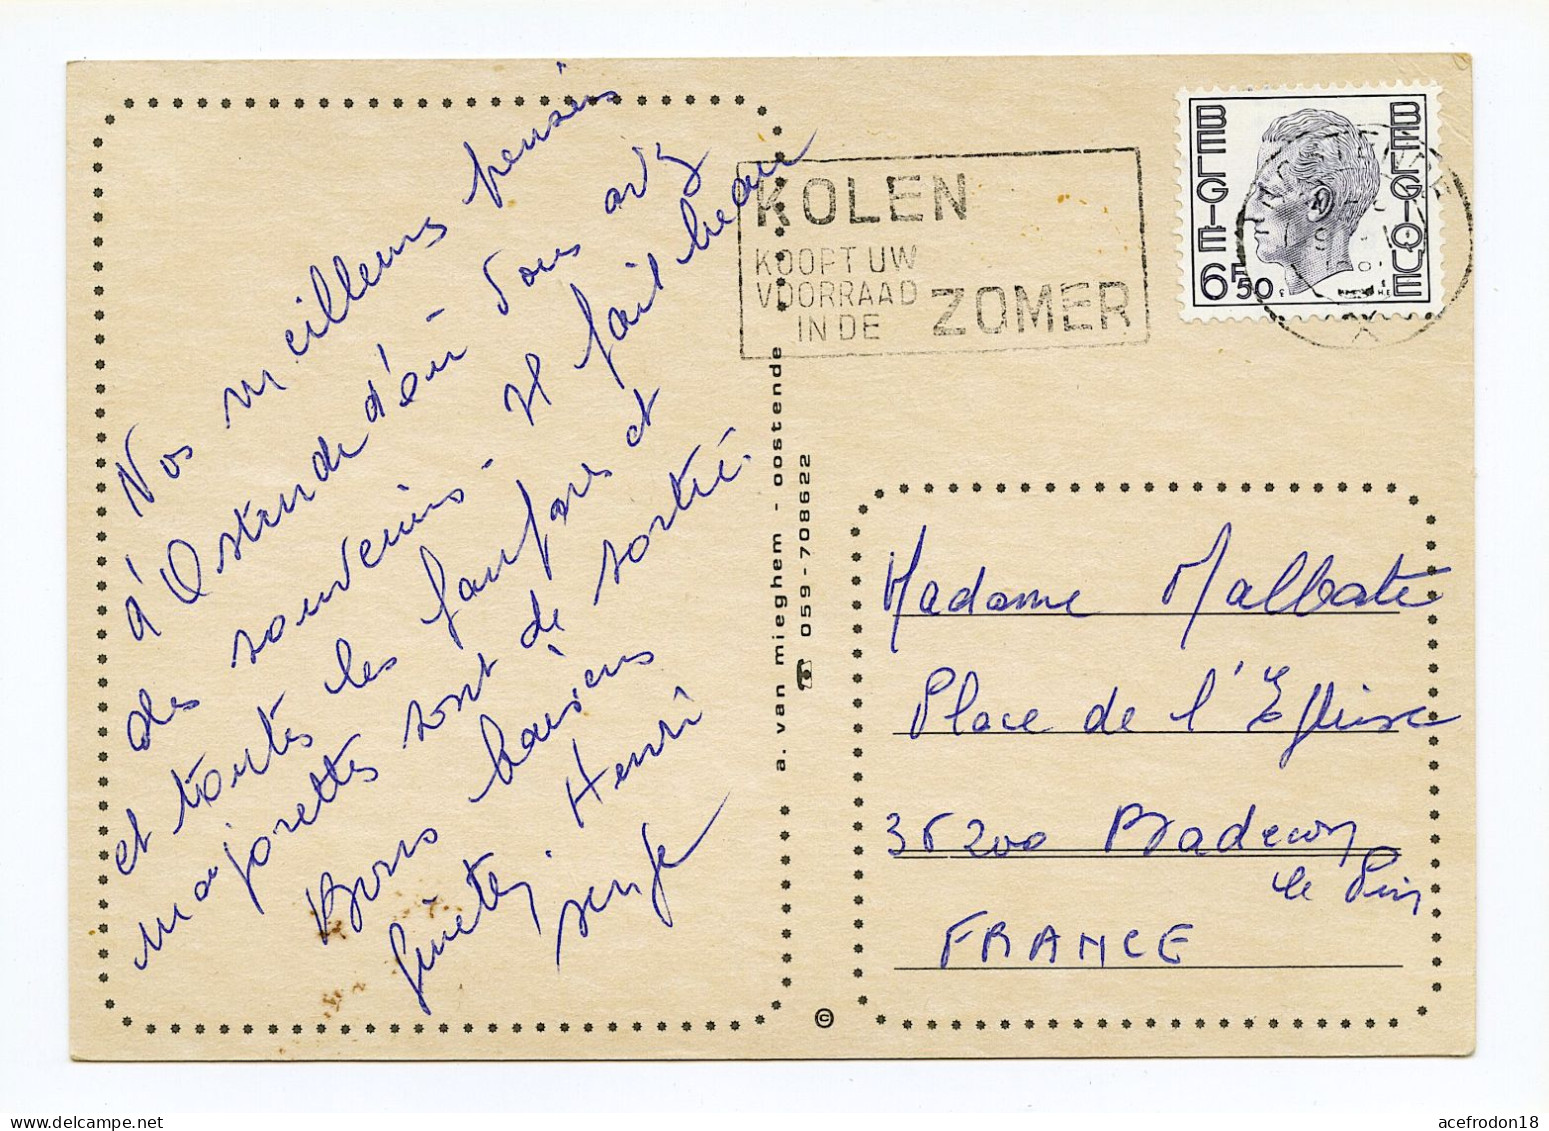 Nos meilleures pensées
d'Ostende d'où vous avez
des souvenirs - Il fait beau
et toutes les fanfares et
majorettes sont de sortie.
Bons baisers
Henri
serge
KOLEN
KOOPT UW
VOORRAAD
IN DE
ZOMER
BELGIE
BELGIQUE
6F50
a. van mieghem - oostende
059-708622
©
Madame Malbate
Place de l'Eglise
36200
le Pin
FRANCE
acefrodon18